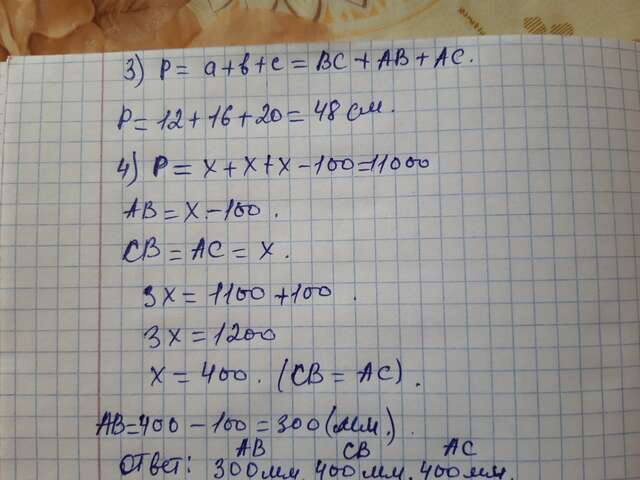 3) P = a+b+c = BC + AB + AC.
P = 12 + 16 + 20 = 48 см.
4) P = x + x + x - 100 = 11000
AB = x - 100.
CB = AC = x.
3x = 1100 + 100.
3x = 1200
x = 400. (CB = AC).
AB = 400 - 100 = 300 (мм.).
AB CB AC
Ответ: 300 мм, 400 мм, 400 мм.